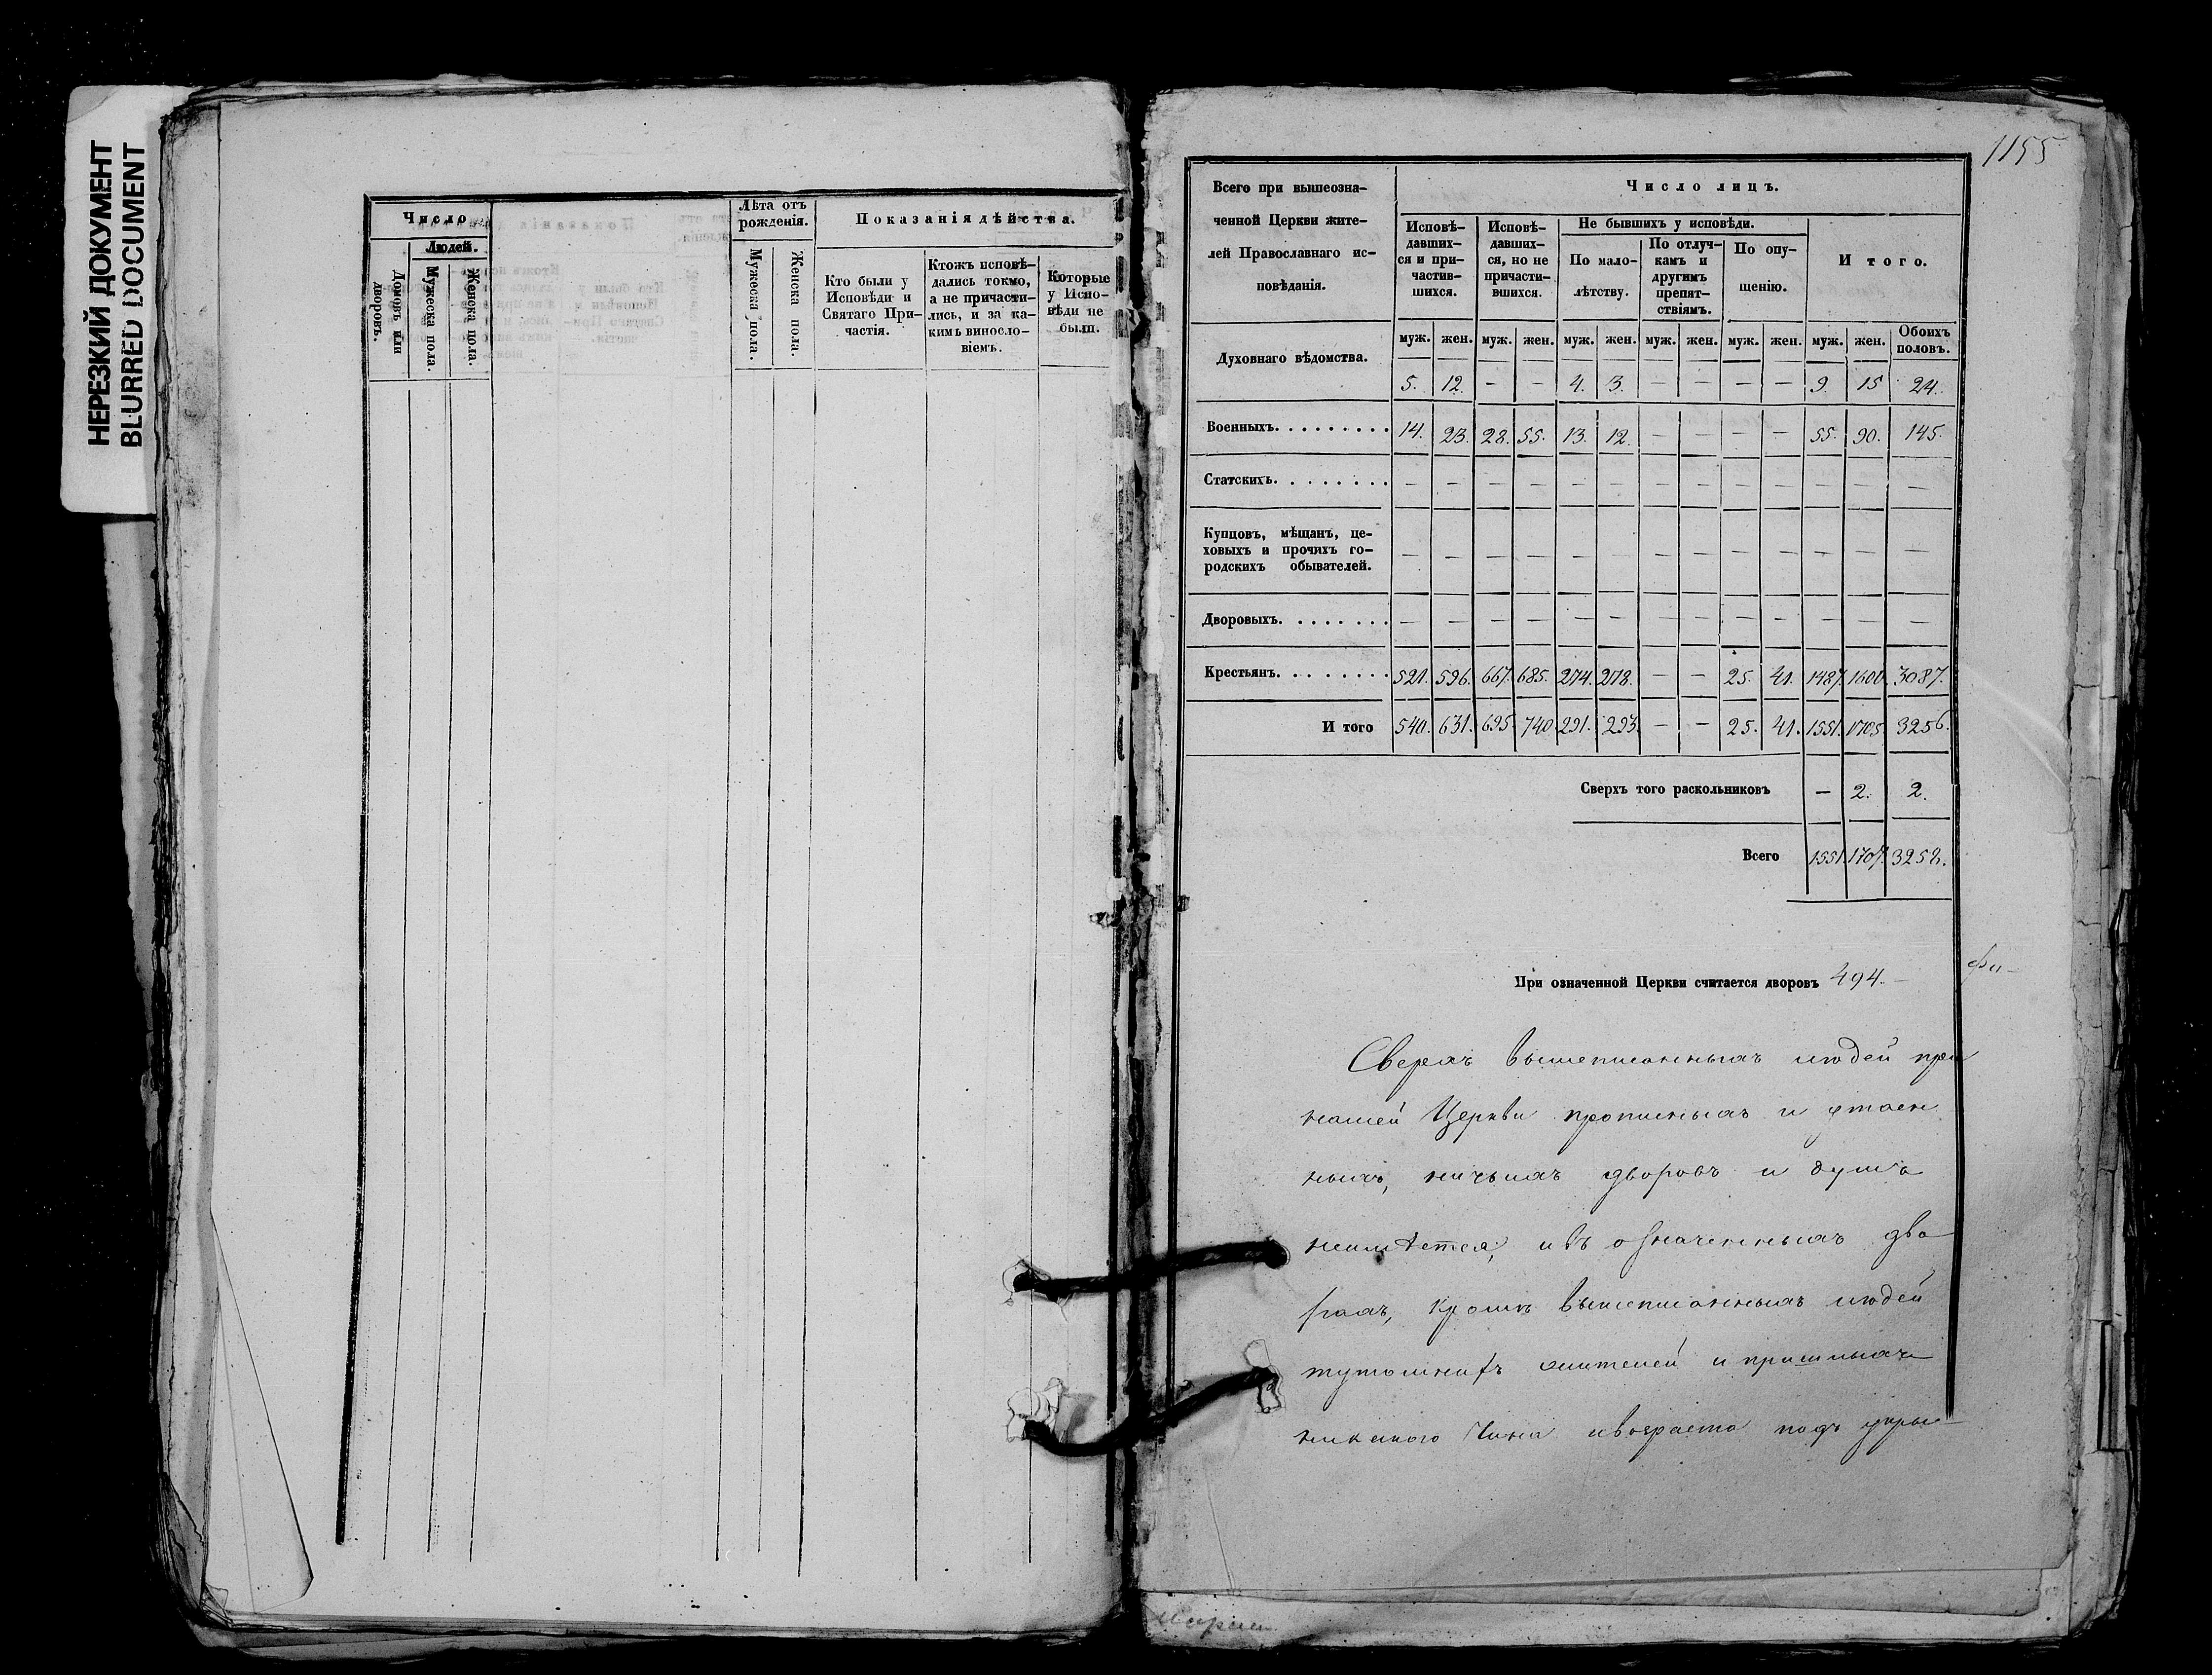 НЕРЕЗКИЙ ДОКУМЕНТ
BLURRED DOCUMENT
Число
Людей.
Домовъ или дворовъ.
Мужеска пола.
Женска пола.
Лѣта отъ рожденія.
Мужеска пола.
Женска пола.
Показанія дѣйства.
Кто были у Исповѣди и Святаго Причастія.
Ктожъ исповѣдались токмо, а не причастились, и за какимъ винословіемъ.
Которые у Исповѣди не были.
1155
Всего при вышеозна-
ченной Церкви жите-
лей Православнаго ис-
повѣданія.
Число лицъ.
Исповѣ-
давших-
ся и при-
частив-
шихся.
Исповѣ-
давших-
ся, но не
причасти-
вшихся.
Не бывшихъ у исповѣди.
По мало-
лѣтству.
По отлуч-
камъ и
другимъ
препят-
ствіямъ.
По опу-
щенію.
Итого.
муж. жен. муж. жен. муж. жен. муж. жен. муж. жен. муж. жен. Обоихъ половъ.
Духовнаго вѣдомства.
5. 12. — — 4. 3. — — — — 9. 15 24.
Военныхъ. . . . . . . . . 14. 23. 28. 55. 13. 12. — — — — 55. 90. 145.
Статскихъ. . . . . . . . — — — — — — — — — — — — —
Купцовъ, мѣщанъ, це-
ховыхъ и прочихъ го-
родскихъ обывателей. — — — — — — — — — — — — —
Дворовыхъ. . . . . . . . — — — — — — — — — — — — —
Крестьянъ. . . . . . . . 521. 596. 667. 685. 274. 278. — — 25. 41. 1487. 1600. 3087.
И того 540. 631. 695. 740. 291. 293. — — 25. 41. 1551. 1705. 3256.
Сверхъ того раскольниковъ — 2. 2.
Всего 1551. 1707. 3258.
При означенной Церкви считается дворовъ 494.—
Сверхъ вышеписанныхъ людей при
нашей Церкви прописныхъ и утаен
ныхъ, ничьихъ дворовъ и душъ
неимѣется, ивъ означенныхъ дво
рахъ, кромѣ вышеписанныхъ людей
тутошнихъ жителей и пришлыхъ
никакого Чина ивозраста подъ укры